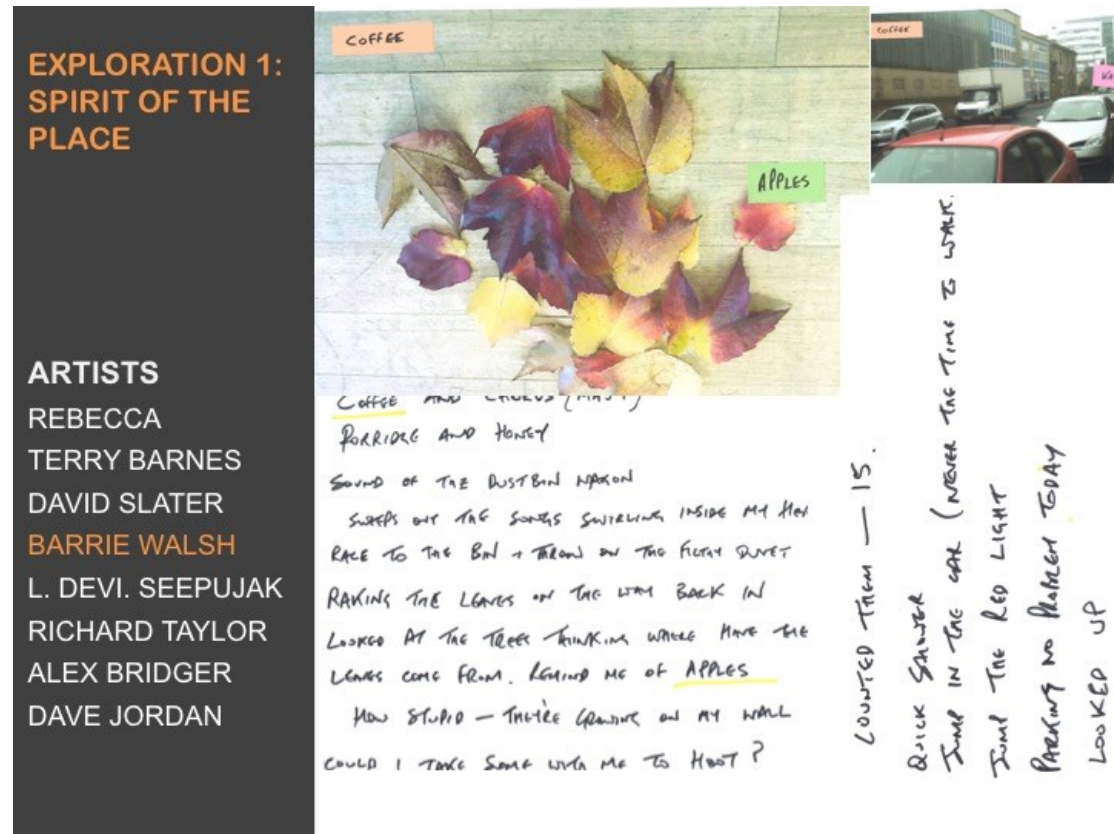 EXPLORATION 1:
SPIRIT OF THE
PLACE
ARTISTS
REBECCA
TERRY BARNES
DAVID SLATER
BARRIE WALSH
L. DEVI. SEEPUJAK
RICHARD TAYLOR
ALEX BRIDGER
DAVE JORDAN
COFFEE
APPLES
COFFEE
COFFEE AND
PORRIDGE AND HONEY
SOUND OF THE DUSTBIN WAGON
SWEEPS OUT THE SONGS SWIRLING INSIDE MY
RACE TO THE BIN + THROW IN THE FILTHY DUVET
RAKING THE LEAVES ON THE WAY BACK IN
LOOKED AT THE TREES THINKING WHERE HAVE THE
LEAVES COME FROM. REMIND ME OF APPLES
HOW STUPID — THEY'RE GROWING ON MY WALL
COULD I TAKE SOME WITH ME TO HOOT?
COUNTED THEM — 15.
QUICK SHOWER
JUMP IN THE CAR (NEVER THE TIME TO WALK.
JUMP THE RED LIGHT
PARKING NO PROBLEM TODAY
LOOKED UP